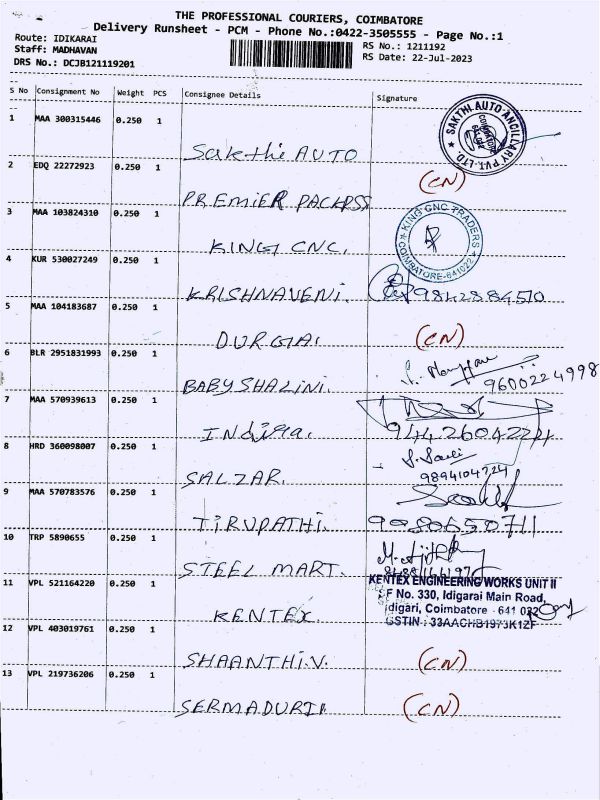 THE PROFESSIONAL COURIERS, COIMBATORE
Delivery Runsheet - PCM - Phone No.:0422-3505555 - Page No.:1
Route: IDIKARAI
Staff: MADHAVAN
DRS No.: DCJB121119201
RS No.: 1211192
RS Date: 22-Jul-2023
S No Consignment No Weight PCS Consignee Details Signature
1 MAA 300315446 0.250 1
Sakthi AUTO
SAKTHI AUTO ANCILLARY PVT. LTD.
2 EDQ 22272923 0.250 1
PREMIER PACKPSS (CN)
3 MAA 103824310 0.250 1
KING CNC.
KING CNC TRADERS
COIMBATORE-641022
4 KUR 530027249 0.250 1
KRISHNAVENI. 9842884510
5 MAA 104183687 0.250 1
DURGA. (CN)
6 BLR 2951831993 0.250 1
BABY SHALINI. 9600224998
7 MAA 570939613 0.250 1
INdiRa. 9442604224
8 HRD 360098007 0.250 1
SALZAR. 9894104724
9 MAA 570783576 0.250 1
TIRUPATHI. 9980650711
10 TRP 5890655 0.250 1
STEEL MART.
11 VPL 521164220 0.250 1
KENTEX.
KENTEX ENGINEERING WORKS UNIT II
SF No. 330, Idigarai Main Road,
Idigari, Coimbatore - 641 022
GSTIN : 33AACHB1973K1ZF
12 VPL 403019761 0.250 1
SHAANTHI.V. (CN)
13 VPL 219736206 0.250 1
SERMADURII (CN)